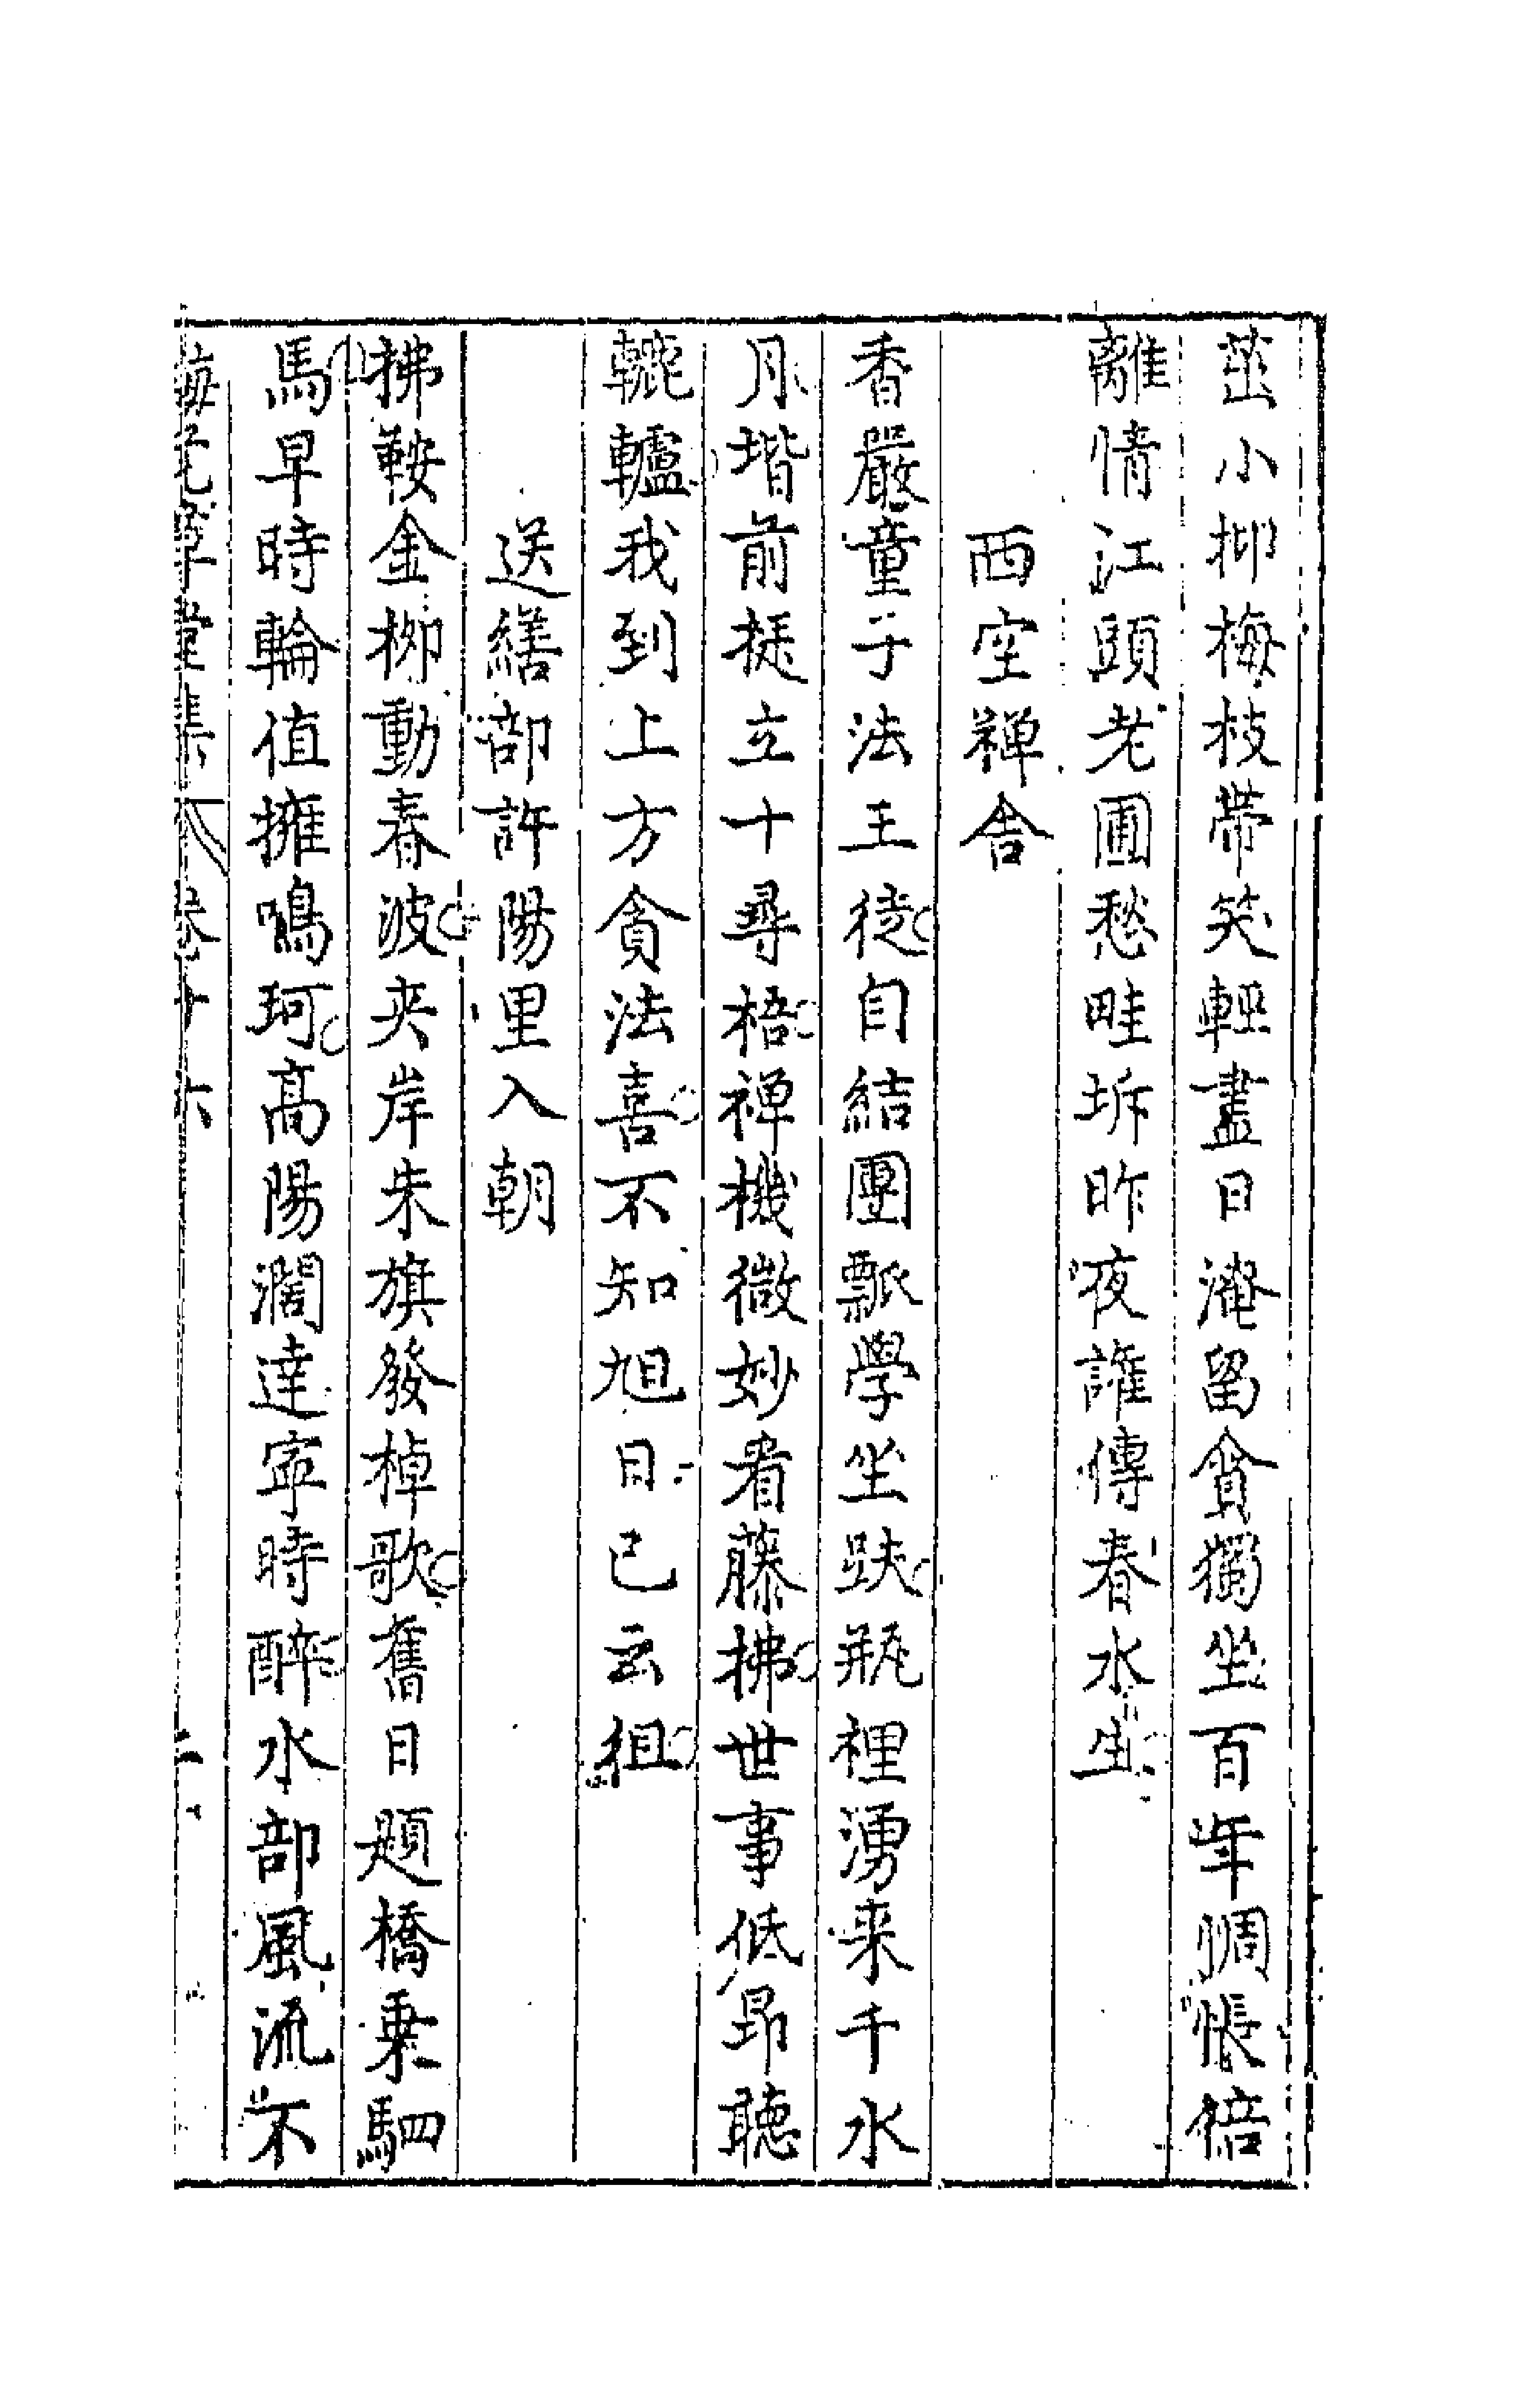 茁小抑梅枝帶笑輕盡日淹留貪獨坐百年惆悵倍
離情江頭老圃愁畦坼昨夜誰傳春水生
西空禪舎
香嚴童子法王徒自結團瓢學坐趺瓶裡湧来千水
月堦前挺立十尋梧禅機微妙看藤拂世事低昂聴
轆轤我到上方貪法喜不知旭日已云徂
送繕部許陽里入朝
拂鞍金柳動春波夾岸朱旗發棹歌舊日題橋乗駟
馬早時輪值擁鳴珂高陽濶達寜時醉水部風流不
草堂集 卷十六 二